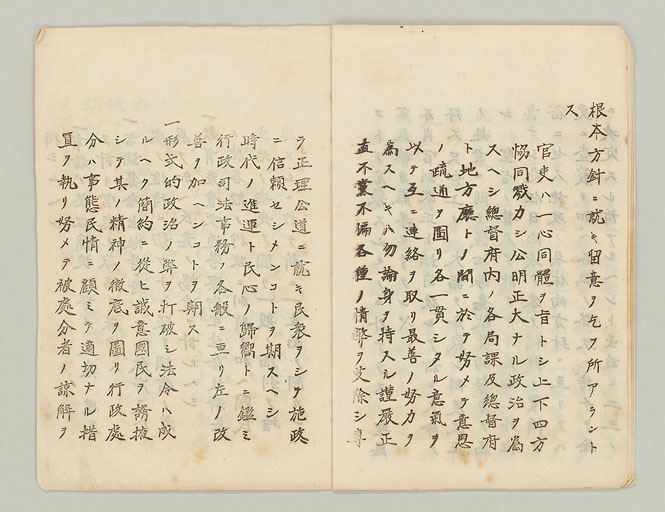 根本方針ニ就キ留意ヲ乞フ所アラント
ス
官吏ハ一心同體ヲ旨トシ上下四方
協同戮力シ公明正大ナル政治ヲ為
スヘシ總督府内ノ各局課及總督府
ト地方廳トノ間ニ於テ努メテ意思
ノ疏通ヲ圖リ各一貫シタル意氣ヲ
以テ互ニ連絡ヲ取リ最善ノ努力ヲ
為スヘキハ勿論身ヲ持スル謹嚴正
直不黨不偏各種ノ情弊ヲ芟除シ專
ラ正理公道ニ就キ民衆ヲシテ施政
ニ信頼セシメンコトヲ期スヘシ
時代ノ進運ト民心ノ歸嚮トニ鑑ミ
行政司法事務ノ各般ニ亘リ左ノ改
善ヲ加ヘンコトヲ期ス
一形式的政治ノ弊ヲ打破シ法令ハ成
ルヘク簡約ニ從ヒ誠意國民ヲ誘掖
シテ其ノ精神ノ徹底ヲ圖リ行政處
分ハ事態民情ニ顧ミテ適切ナル措
置ヲ執リ努メテ被處分者ノ諒解ヲ